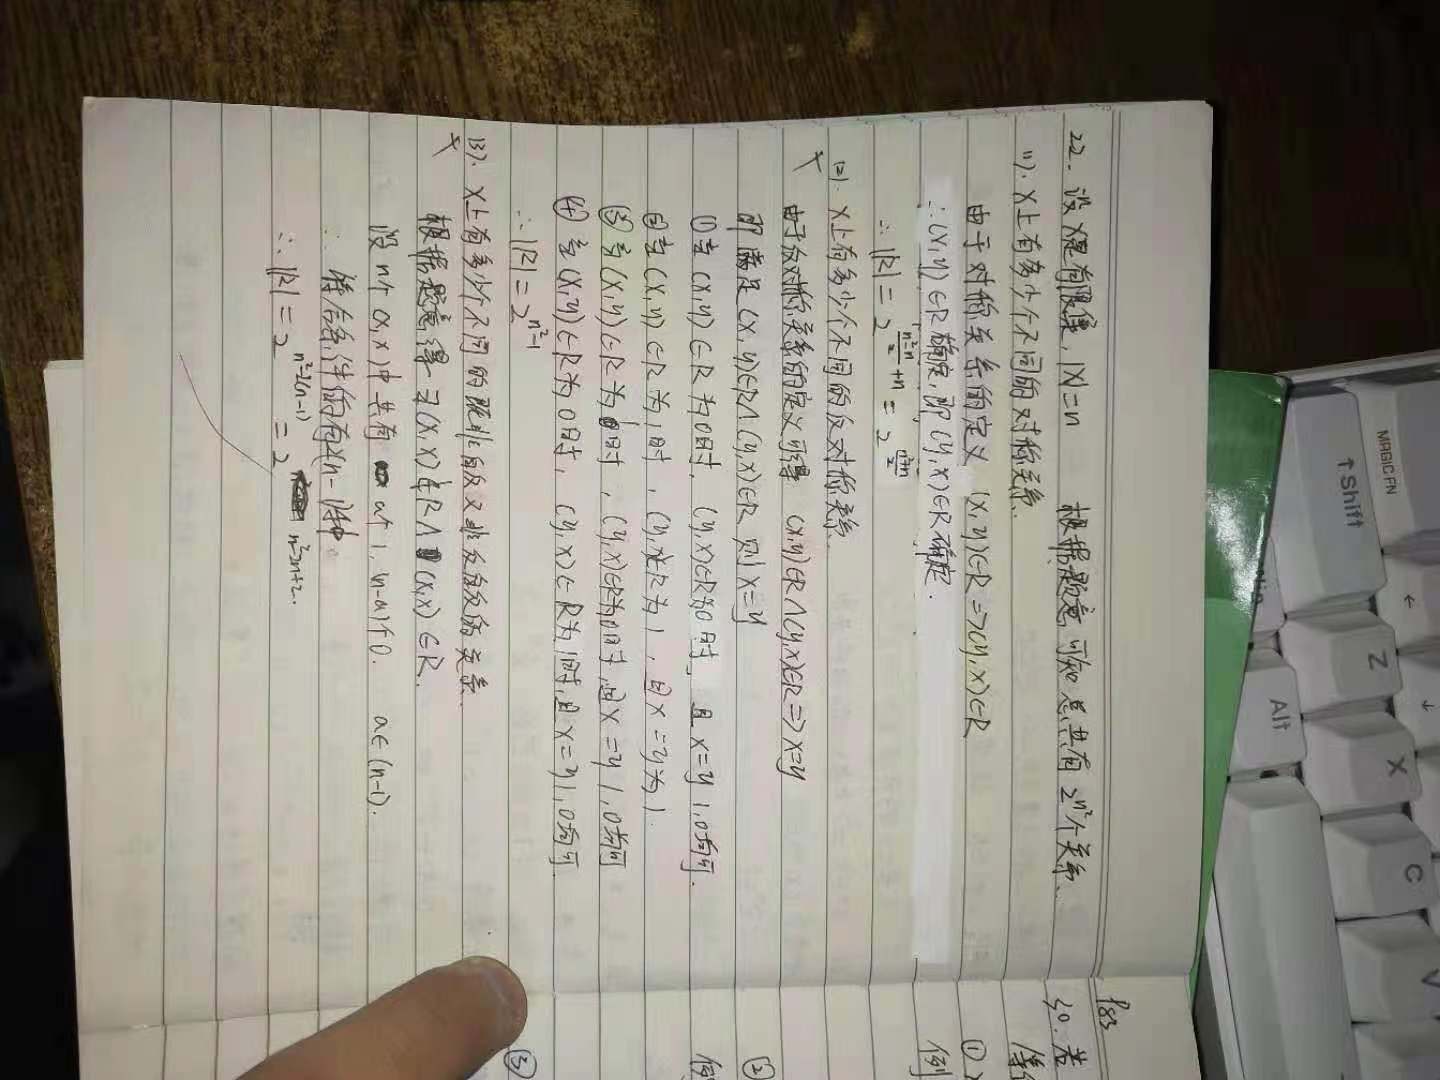 22. 设X是有限集, |X|=n 根据题意可知总共有 2^{n²}个关系.
(1). X上有多少个不同的对称关系.
由于对称关系的定义 (x,y)∈R=>(y,x)∈R
∴(x,y)∈R确定,即(y,x)∈R确定.
∴ |R| = 2^{\frac{n²-n}{2}+n} = 2^{\frac{n²+n}{2}}
(2). X上有多少个不同的反对称关系.
× 由于反对称关系的定义可得 (x,y)∈R∧(y,x)∈R=>x=y
即满足(x,y)∈R∧(y,x)∈R 则x=y
① 当(x,y)∈R为0时, (y,x)∈R为0时, 且x=y 1,0均可.
②当(x,y)∈R为1时, (y,x)∈R为1, 且x=y为1.
③当(x,y)∈R为1时, (y,x)∈R为0时, x=y 1,0均可
④ 当(x,y)∈R为0时, (y,x)∈R为1时,且x=y 1,0均可.
∴ |R| = 2^{n²-1}
(3). X上有多少个不同的既非自反又非反自反的关系.
× 根据题意得 ∃(x,x)∉R∧(x,x)∈R.
设n个(x,x)中共有 a个1, (n-a)个0. a∈(n-1).
∴ 符合条件的有 n-1种
∴ |R| = 2^{n²-2(n-1)} = 2^{n²-2n+2}.
P83
30. 若
①
例
②
例
③
Shift
MAGICFN
Alt
Z
X
C
V